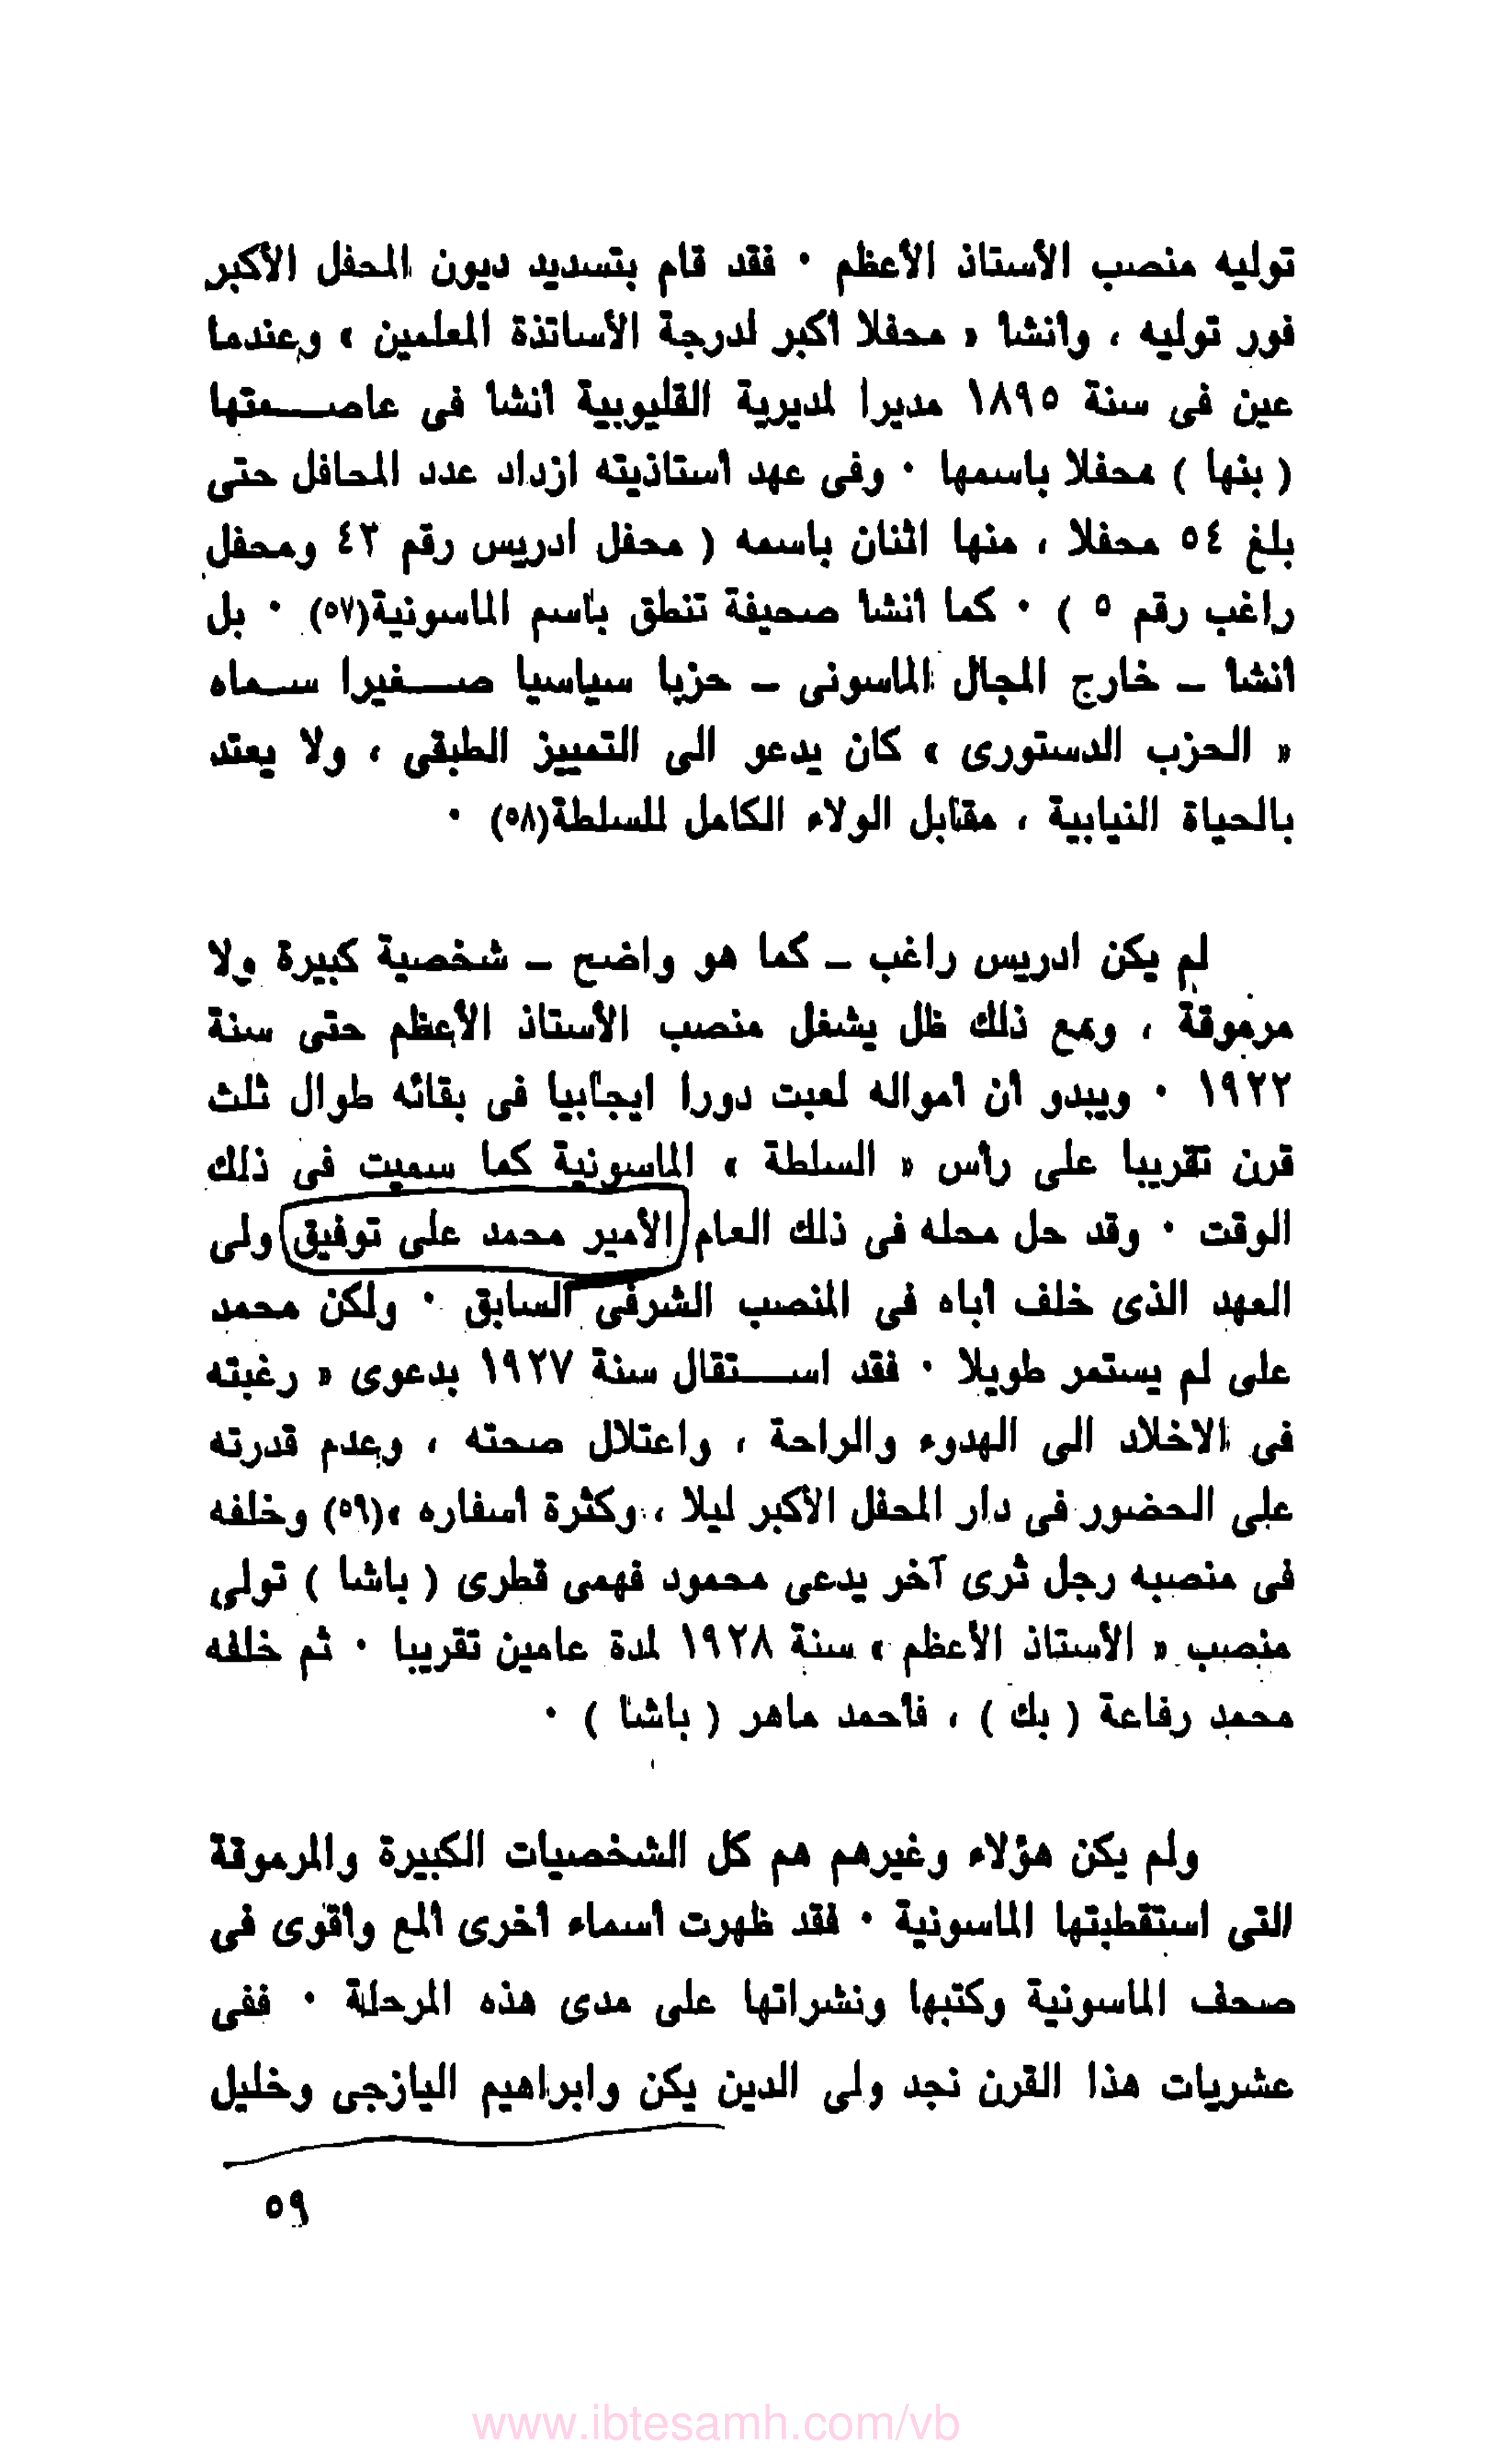 توليه منصب الأستاذ الأعظم · فقد قام بتسديد ديون المحفل الأكبر
فور توليه ، وأنشأ « محفلا أكبر لدرجة الأساتذة المعلمين » وعندما
عين فى سنة ١٨٩٥ مديرا لمديرية القليوبية أنشأ فى عاصــمتها
( بنها ) محفلا باسمها · وفى عهد أستاذيته ازداد عدد المحافل حتى
بلغ ٥٤ محفلا ، منها اثنان باسمه ( محفل ادريس رقم ٤٣ ومحفل
راغب رقم ٥ ) · كما أنشأ صحيفة تنطق باسم الماسونية(٥٧) · بل
أنشأ ــ خارج المجال الماسونى ــ حزبا سياسيا صــغيرا ســماه
« الحزب الدستورى » كان يدعو الى التمييز الطبقى ، ولا يعتد
بالحياة النيابية ، مقابل الولاء الكامل للسلطة(٥٨) ·
لم يكن ادريس راغب ــ كما هو واضح ــ شخصية كبيرة ولا
مرموقة ، ومع ذلك ظل يشغل منصب الأستاذ الأعظم حتى سنة
١٩٢٢ · ويبدو أن أمواله لعبت دورا ايجابيا فى بقائه طوال ثلث
قرن تقريبا على رأس « السلطة » الماسونية كما سميت فى ذلك
الوقت · وقد حل محله فى ذلك العام الأمير محمد على توفيق ولى
العهد الذى خلف أباه فى المنصب الشرفى السابق · ولكن محمد
على لم يستمر طويلا · فقد اســتقال سنة ١٩٢٧ بدعوى « رغبته
فى الاخلاد الى الهدوء والراحة ، واعتلال صحته ، وعدم قدرته
على الحضور فى دار المحفل الأكبر ليلا ، وكثرة أسفاره »(٥٩) وخلفه
فى منصبه رجل ثرى آخر يدعى محمود فهمى قطرى ( باشا ) تولى
منصب « الأستاذ الأعظم » سنة ١٩٢٨ لمدة عامين تقريبا · ثم خلفه
محمد رفاعة ( بك ) ، فأحمد ماهر ( باشا ) ·
ولم يكن هؤلاء وغيرهم هم كل الشخصيات الكبيرة والمرموقة
التى استقطبتها الماسونية · فقد ظهرت أسماء أخرى ألمع وأقوى فى
صحف الماسونية وكتبها ونشراتها على مدى هذه المرحلة · ففى
عشريات هذا القرن نجد ولى الدين يكن وابراهيم اليازجى وخليل
٥٩
www.ibtesamh.com/vb